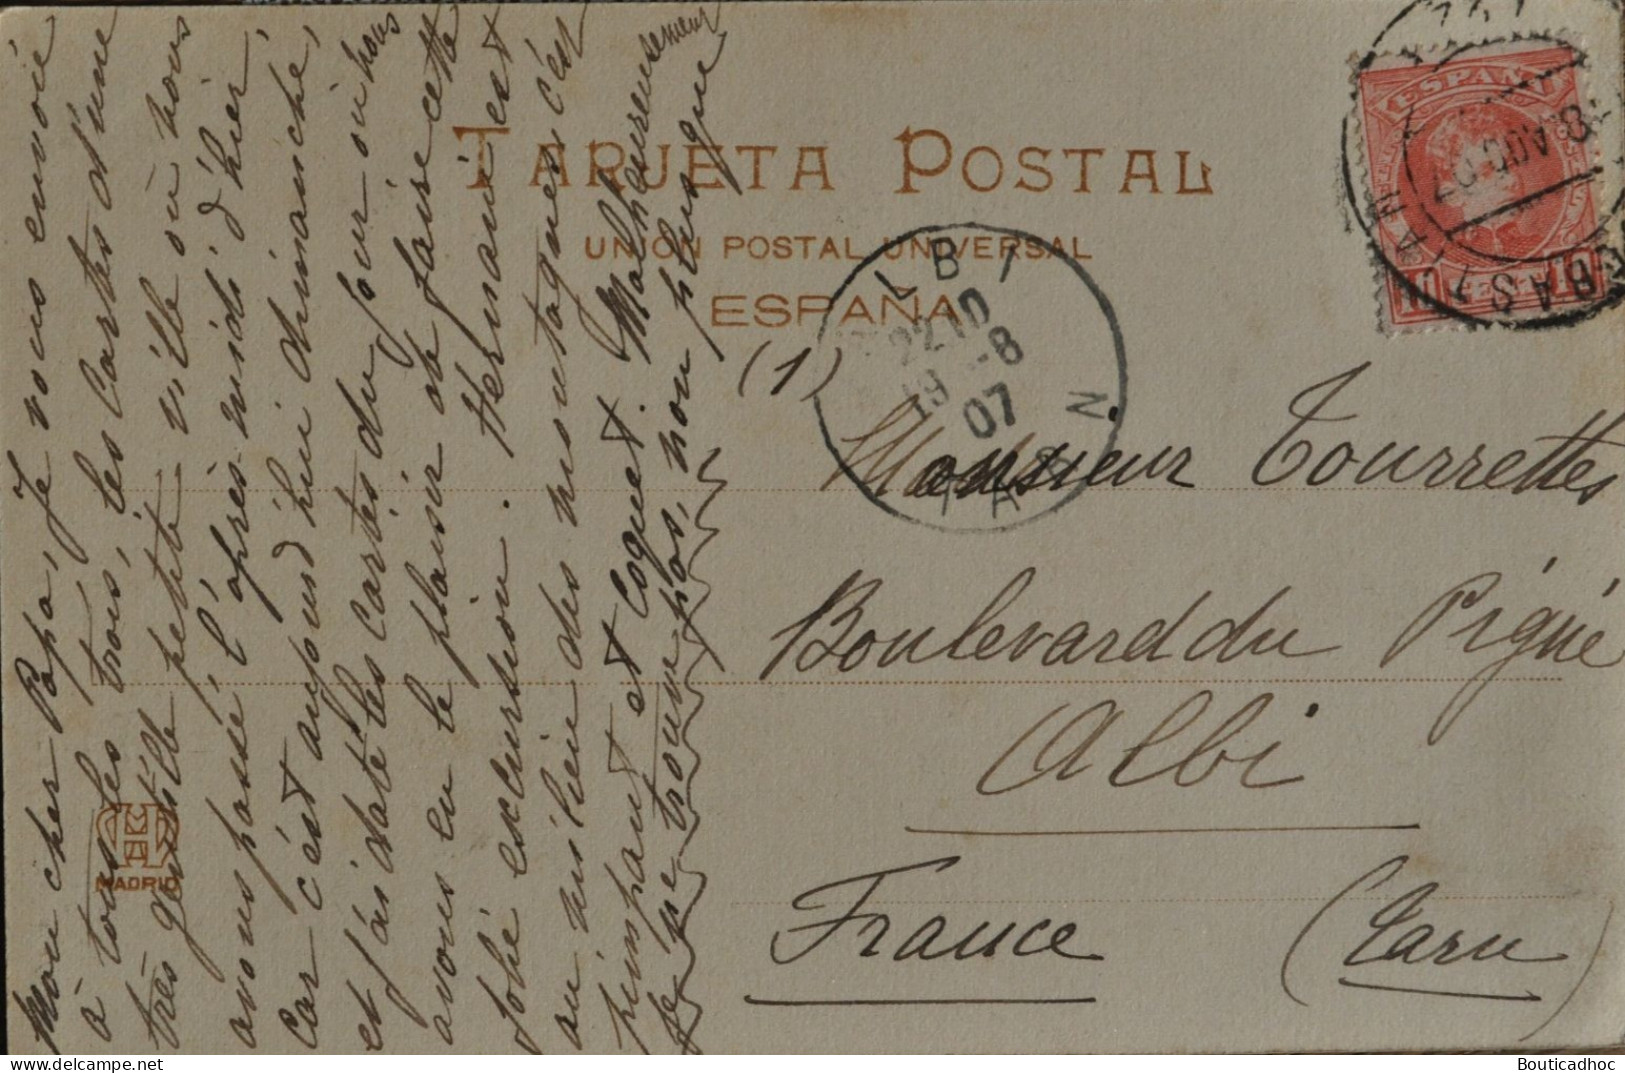 TARJETA POSTAL
UNIÓN POSTAL UNIVERSAL
ESPAÑA
(1)
Monsieur Tourrettes
Boulevard du Pigné
Albi
France (Tarn)
Mon cher Papa, Je vous envoie
à toutes trois, les Cartes d'une
très gentille petite ville où nous
avons passé l'après-midi d'hier,
Car c'est aujourd'hui dimanche,
et j'ai daté les cartes du jour où nous
avons eu le plaisir de faire cette
jolie excursion. Hernani est
au milieu des montagnes c'est
pimpant et coquet. Malheureusement
je ne trouve pas, non plus que
ALBI
22 10
19 -8
07
TARN
ESPAÑA
10
8 AGO 07
SEBASTIAN
HM
MADRID
Bouticadhoc